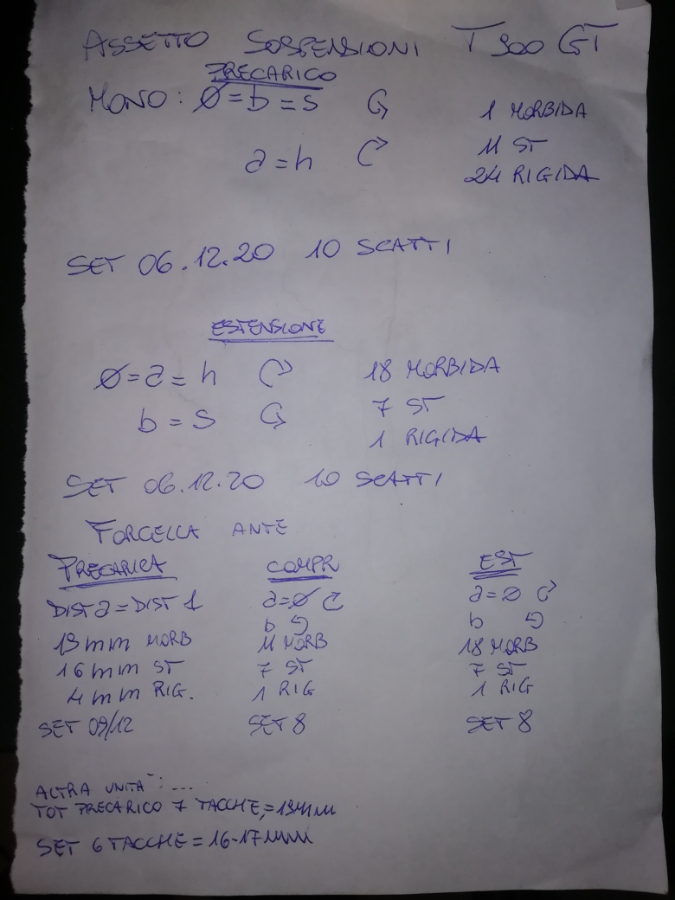 ASSETTO SOSPENSIONI T 900 GT
PRECARICO
MONO: Ø = b = S ↺ 1 MORBIDA
a = h ↻ 11 ST
24 RIGIDA
SET 06.12.20 10 SCATTI
ESTENSIONE
Ø = a = h ↻ 18 MORBIDA
b = S ↺ 7 ST
1 RIGIDA
SET 06.12.20 10 SCATTI
FORCELLA ANTE
PRECARICA COMPR EST
DIST a = DIST 1 a = Ø ↻ a = Ø ↻
b ↺ b ↺
19 mm MORB 11 MORB 18 MORB
16 mm ST 7 ST 7 ST
4 mm RIG. 1 RIG 1 RIG
SET 09/12 SET 8 SET 8
ALTRA UNITA': ...
TOT PRECARICO 7 TACCHE = 19mm
SET 6 TACCHE = 16-17mm